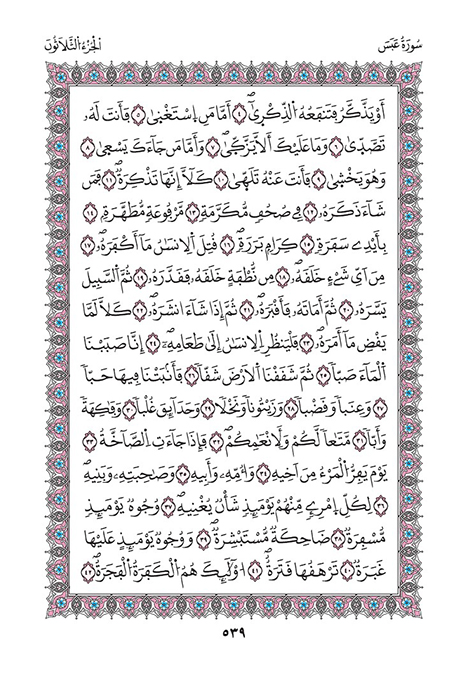 سُورَةُ عَبَسَ
الْجُزْءُ الثَّلَاثُونَ
أَوْ يَذَّكَّرُ فَتَنفَعُهُ الذِّكْرِىٰ ٤ أَمَّا مَنِ اِسْتَغْنِىٰ ٥ فَأَنتَ لَهُۥ
تَصَّدِّىٰ ٦ وَمَا عَلَيْكَ أَلَّا يَزَّكِّىٰ ٧ وَأَمَّا مَن جَآءَكَ يَسْعِىٰ ٨
وَهُوَ يَخْشِىٰ ٩ فَأَنتَ عَنْهُ تَلَهِّىٰ ١٠ كَلَّآ إِنَّهَا تَذْكِرَةٌ ١١ فَمَن
شَآءَ ذَكَرَهُۥ ١٢ فِے صُحُفٍ مُّكَرَّمَةٍ ١٣ مَّرْفُوعَةٍ مُّطَهَّرَةٍۭ ١٤
بِأَيْدِے سَفَرَةٍ ١٥ كِرَامٍۭ بَرَرَةٍ ١٦ قُتِلَ اَلِانسَٰنُ مَآ أَكْفَرَهُۥ ١٧
مِنَ اَيِّ شَےْءٍ خَلَقَهُۥ ١٨ مِن نُّطْفَةٍ خَلَقَهُۥ فَقَدَّرَهُۥ ١٩ ثُمَّ اَلسَّبِيلَ
يَسَّرَهُۥ ٢٠ ثُمَّ أَمَاتَهُۥ فَأَقْبَرَهُۥ ٢١ ثُمَّ إِذَا شَآءَ انشَرَهُۥ ٢٢ كَلَّا لَمَّا
يَقْضِ مَآ أَمَرَهُۥ ٢٣ فَلْيَنظُرِ اِلِانسَٰنُ إِلَىٰ طَعَامِهِۦٓ ٢٤ إِنَّا صَبَبْنَا
اَلْمَآءَ صَبّاً ٢٥ ثُمَّ شَقَقْنَا اَلَارْضَ شَقّاً ٢٦ فَأَنۢبَتْنَا فِيهَا حَبّاً
٢٧ وَعِنَباً وَقَضْباً ٢٨ وَزَيْتُوناً وَنَخْلاً ٢٩ وَحَدَآئِقَ غُلْباً ٣٠ وَفَٰكِهَةً
وَأَبّاً ٣١ مَّتَٰعاً لَّكُمْ وَلِأَنْعَٰمِكُمْ ٣٢ فَإِذَا جَآءَتِ اِلصَّآخَّةُ ٣٣
يَوْمَ يَفِرُّ اُلْمَرْءُ مِنَ اَخِيهِ ٣٤ وَأُمِّهِۦ وَأَبِيهِ ٣٥ وَصَٰحِبَتِهِۦ وَبَنِيهِ
٣٦ لِكُلِّ اِمْرِےٍٕ مِّنْهُمْ يَوْمَئِذٍ شَأْنٌ يُغْنِيهِ ٣٧ وُجُوهٌ يَوْمَئِذٍ
مُّسْفِرَةٌ ٣٨ ضَاحِكَةٌ مُّسْتَبْشِرَةٌ ٣٩ وَوُجُوهٌ يَوْمَئِذٍ عَلَيْهَا
غَبَرَةٌ ٤٠ تَرْهَقُهَا قَتَرَةٌ ٤١ اُوْلَٰٓئِكَ هُمُ اُلْكَفَرَةُ اُلْفَجَرَةُ ٤٢
٥٣٩